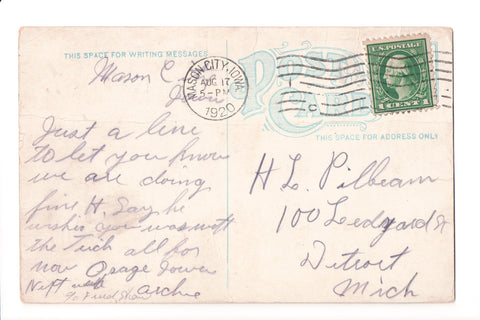 THIS SPACE FOR WRITING MESSAGES
POST CARD
THIS SPACE FOR ADDRESS ONLY
MASON CITY, IOWA
AUG 17
5-PM
1920
U.S. POSTAGE
1 CENT 1
Mason
Iowa
Just a line
to let you know
we are doing
fine H. Say he
wishes you was with
the all for
now Osage Iowa
Next week
archie
H L Pilbeam
100 Ledyard St
Detroit
Mich